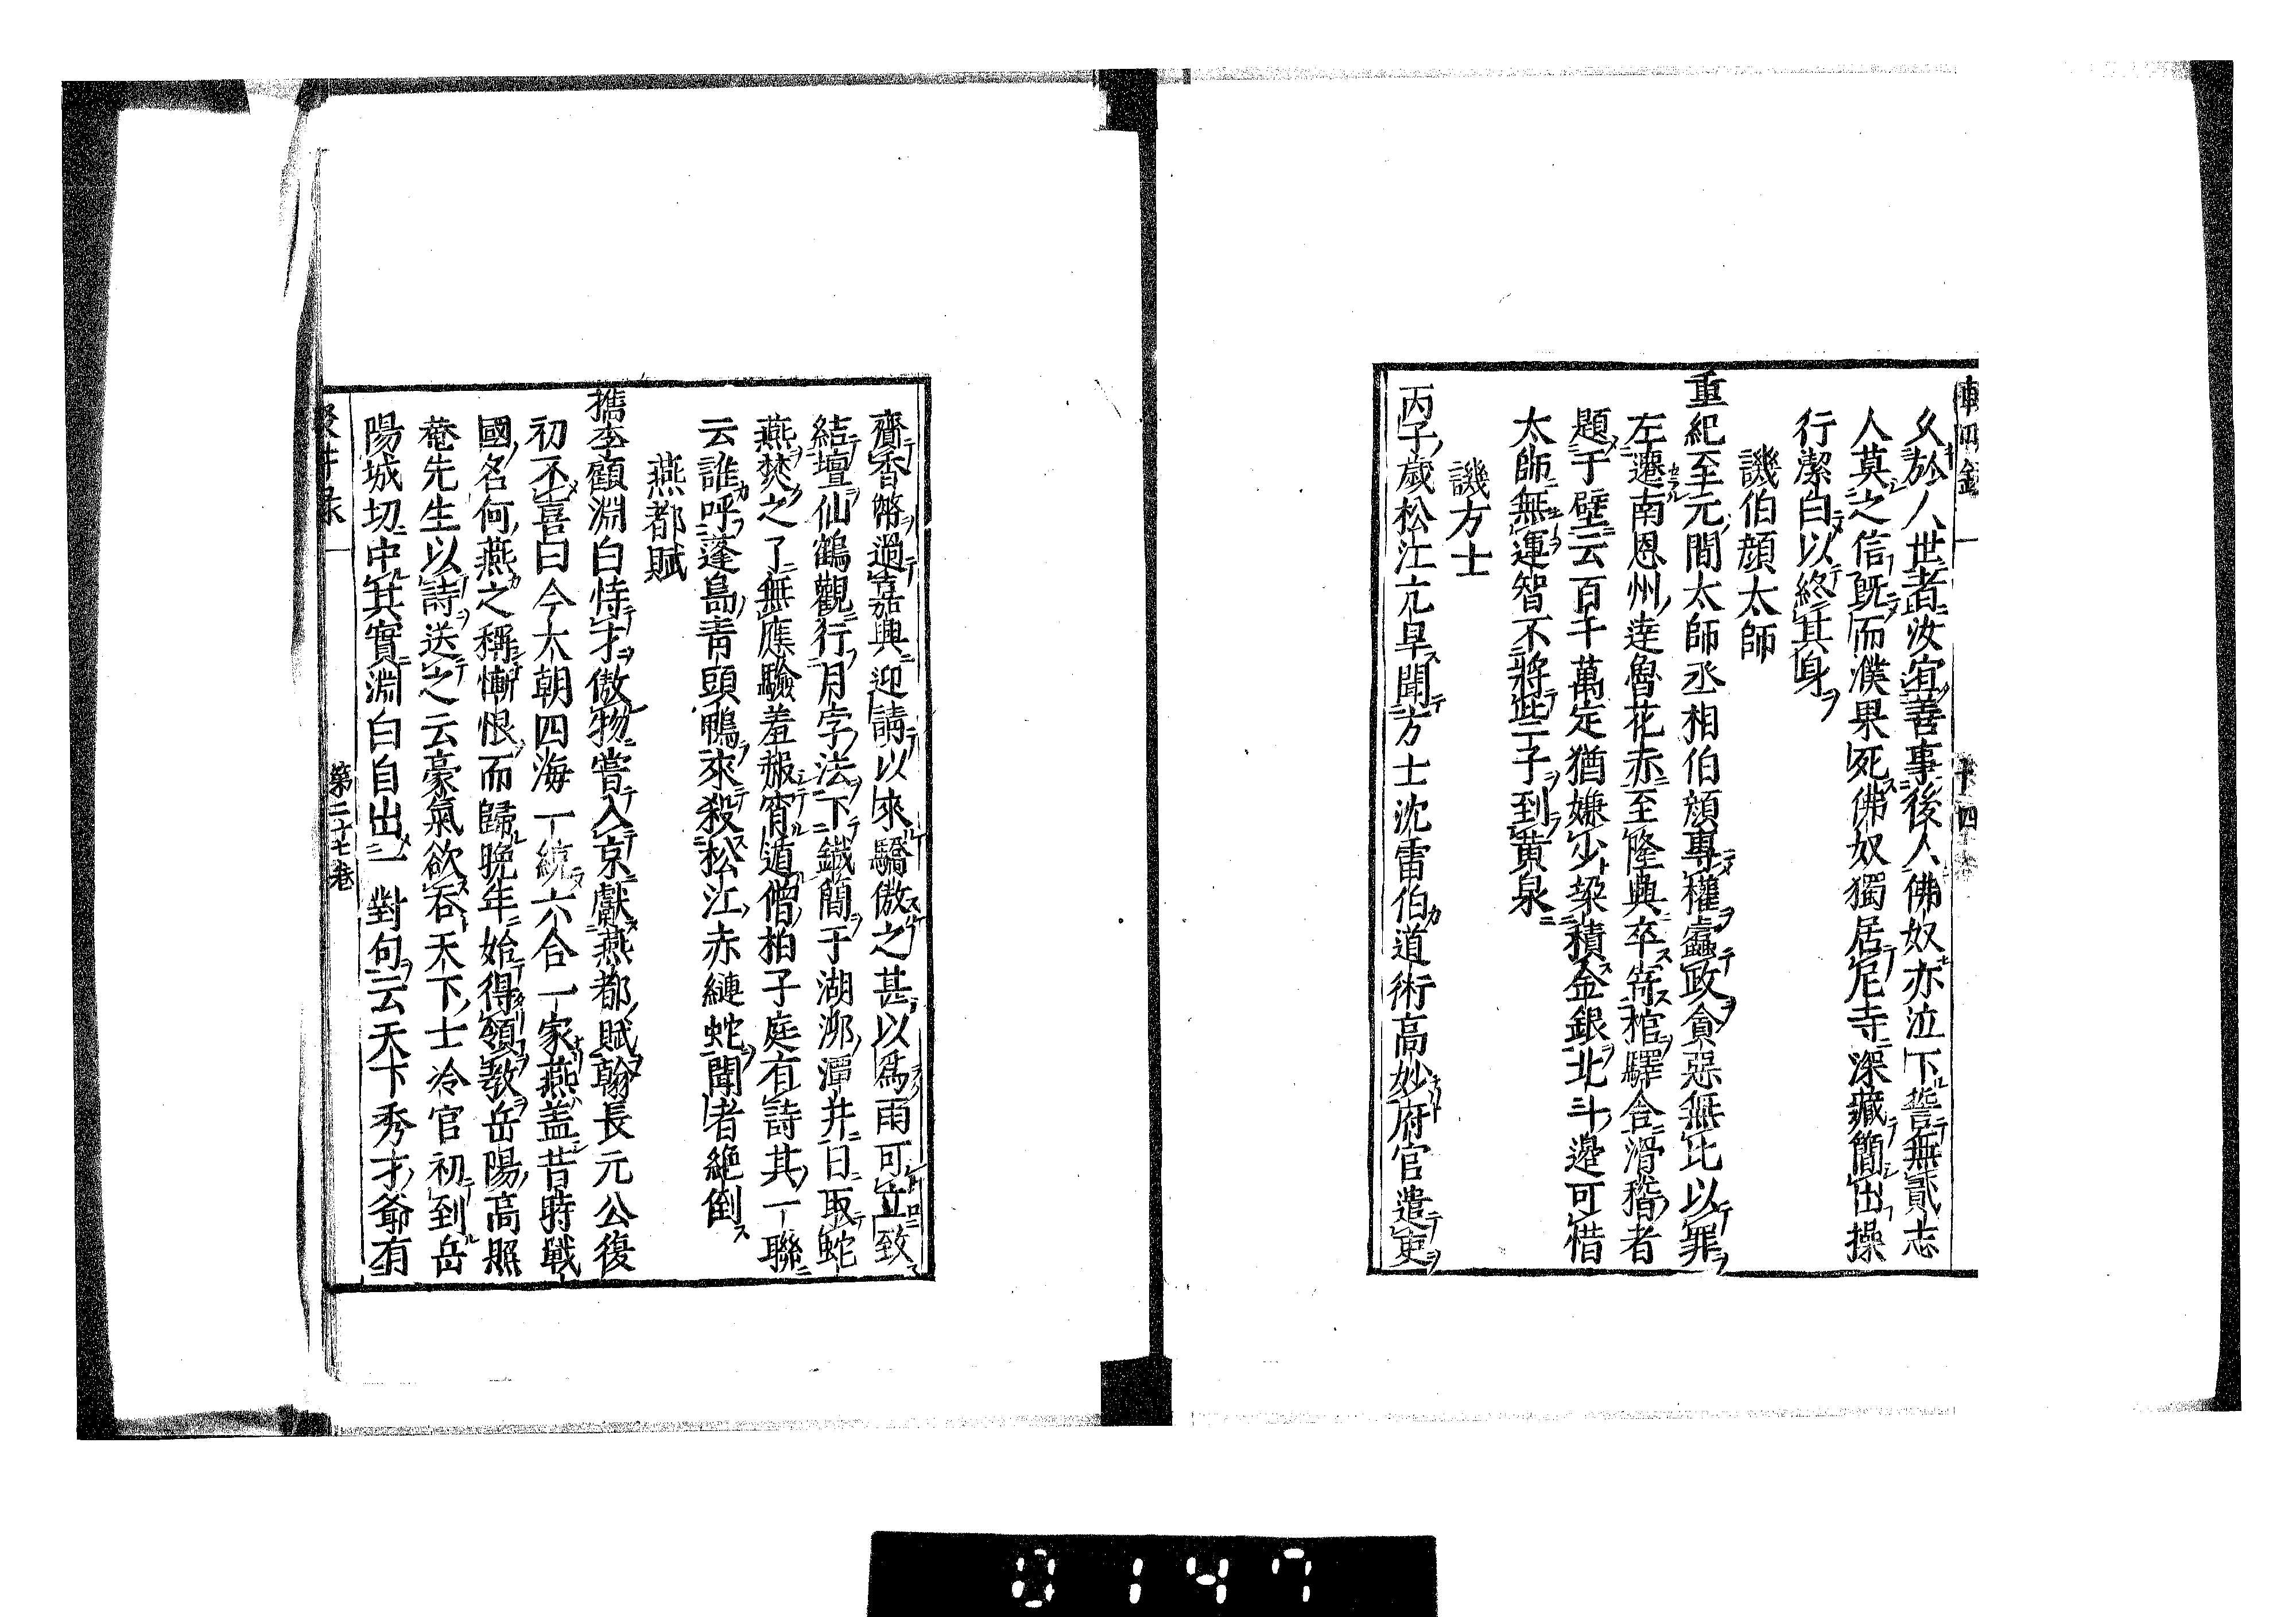 久於人世者汝宜善事後人佛奴亦泣下誓無貳志
人莫之信既而濮果死佛奴獨居尼寺深藏簡出操
行潔白以終其身
譏伯顔太師
重紀至元間太師丞相伯顔專權蠧政貪惡無比以罪
左遷南恩州達魯花赤至隆興卒寄棺驛舍滑稽者
題于壁云百千萬定猶嫌少垜積金銀北斗邊可惜
太師無運智不將些子到黄泉
譏方士
丙子歲松江亢旱聞方士沈雷伯道術高妙府官遣吏
齎香幣過嘉興迎請以來驕傲之甚以爲雨可立致
結壇仙鶴觀行月孛法下鐵簡于湖泖潭井日取蛇
燕焚之了無應驗羞赧宵遁僧柏子庭有詩其一聯
云誰呼蓬島青頭鴨來殺松江赤練蛇聞者絶倒
燕都賦
檇李顧淵白恃才傲物嘗入京獻燕都賦翰長元公復
初不喜曰今大朝四海一統六合一家燕盖昔時戰
國名何燕之稱慚恨而歸晩年始得領教岳陽高照
菴先生以詩送之云豪氣欲吞天下士冷官初到岳
陽城切中其實淵白自出一對句云天下秀才爺有
第二十七巻
十四
0147